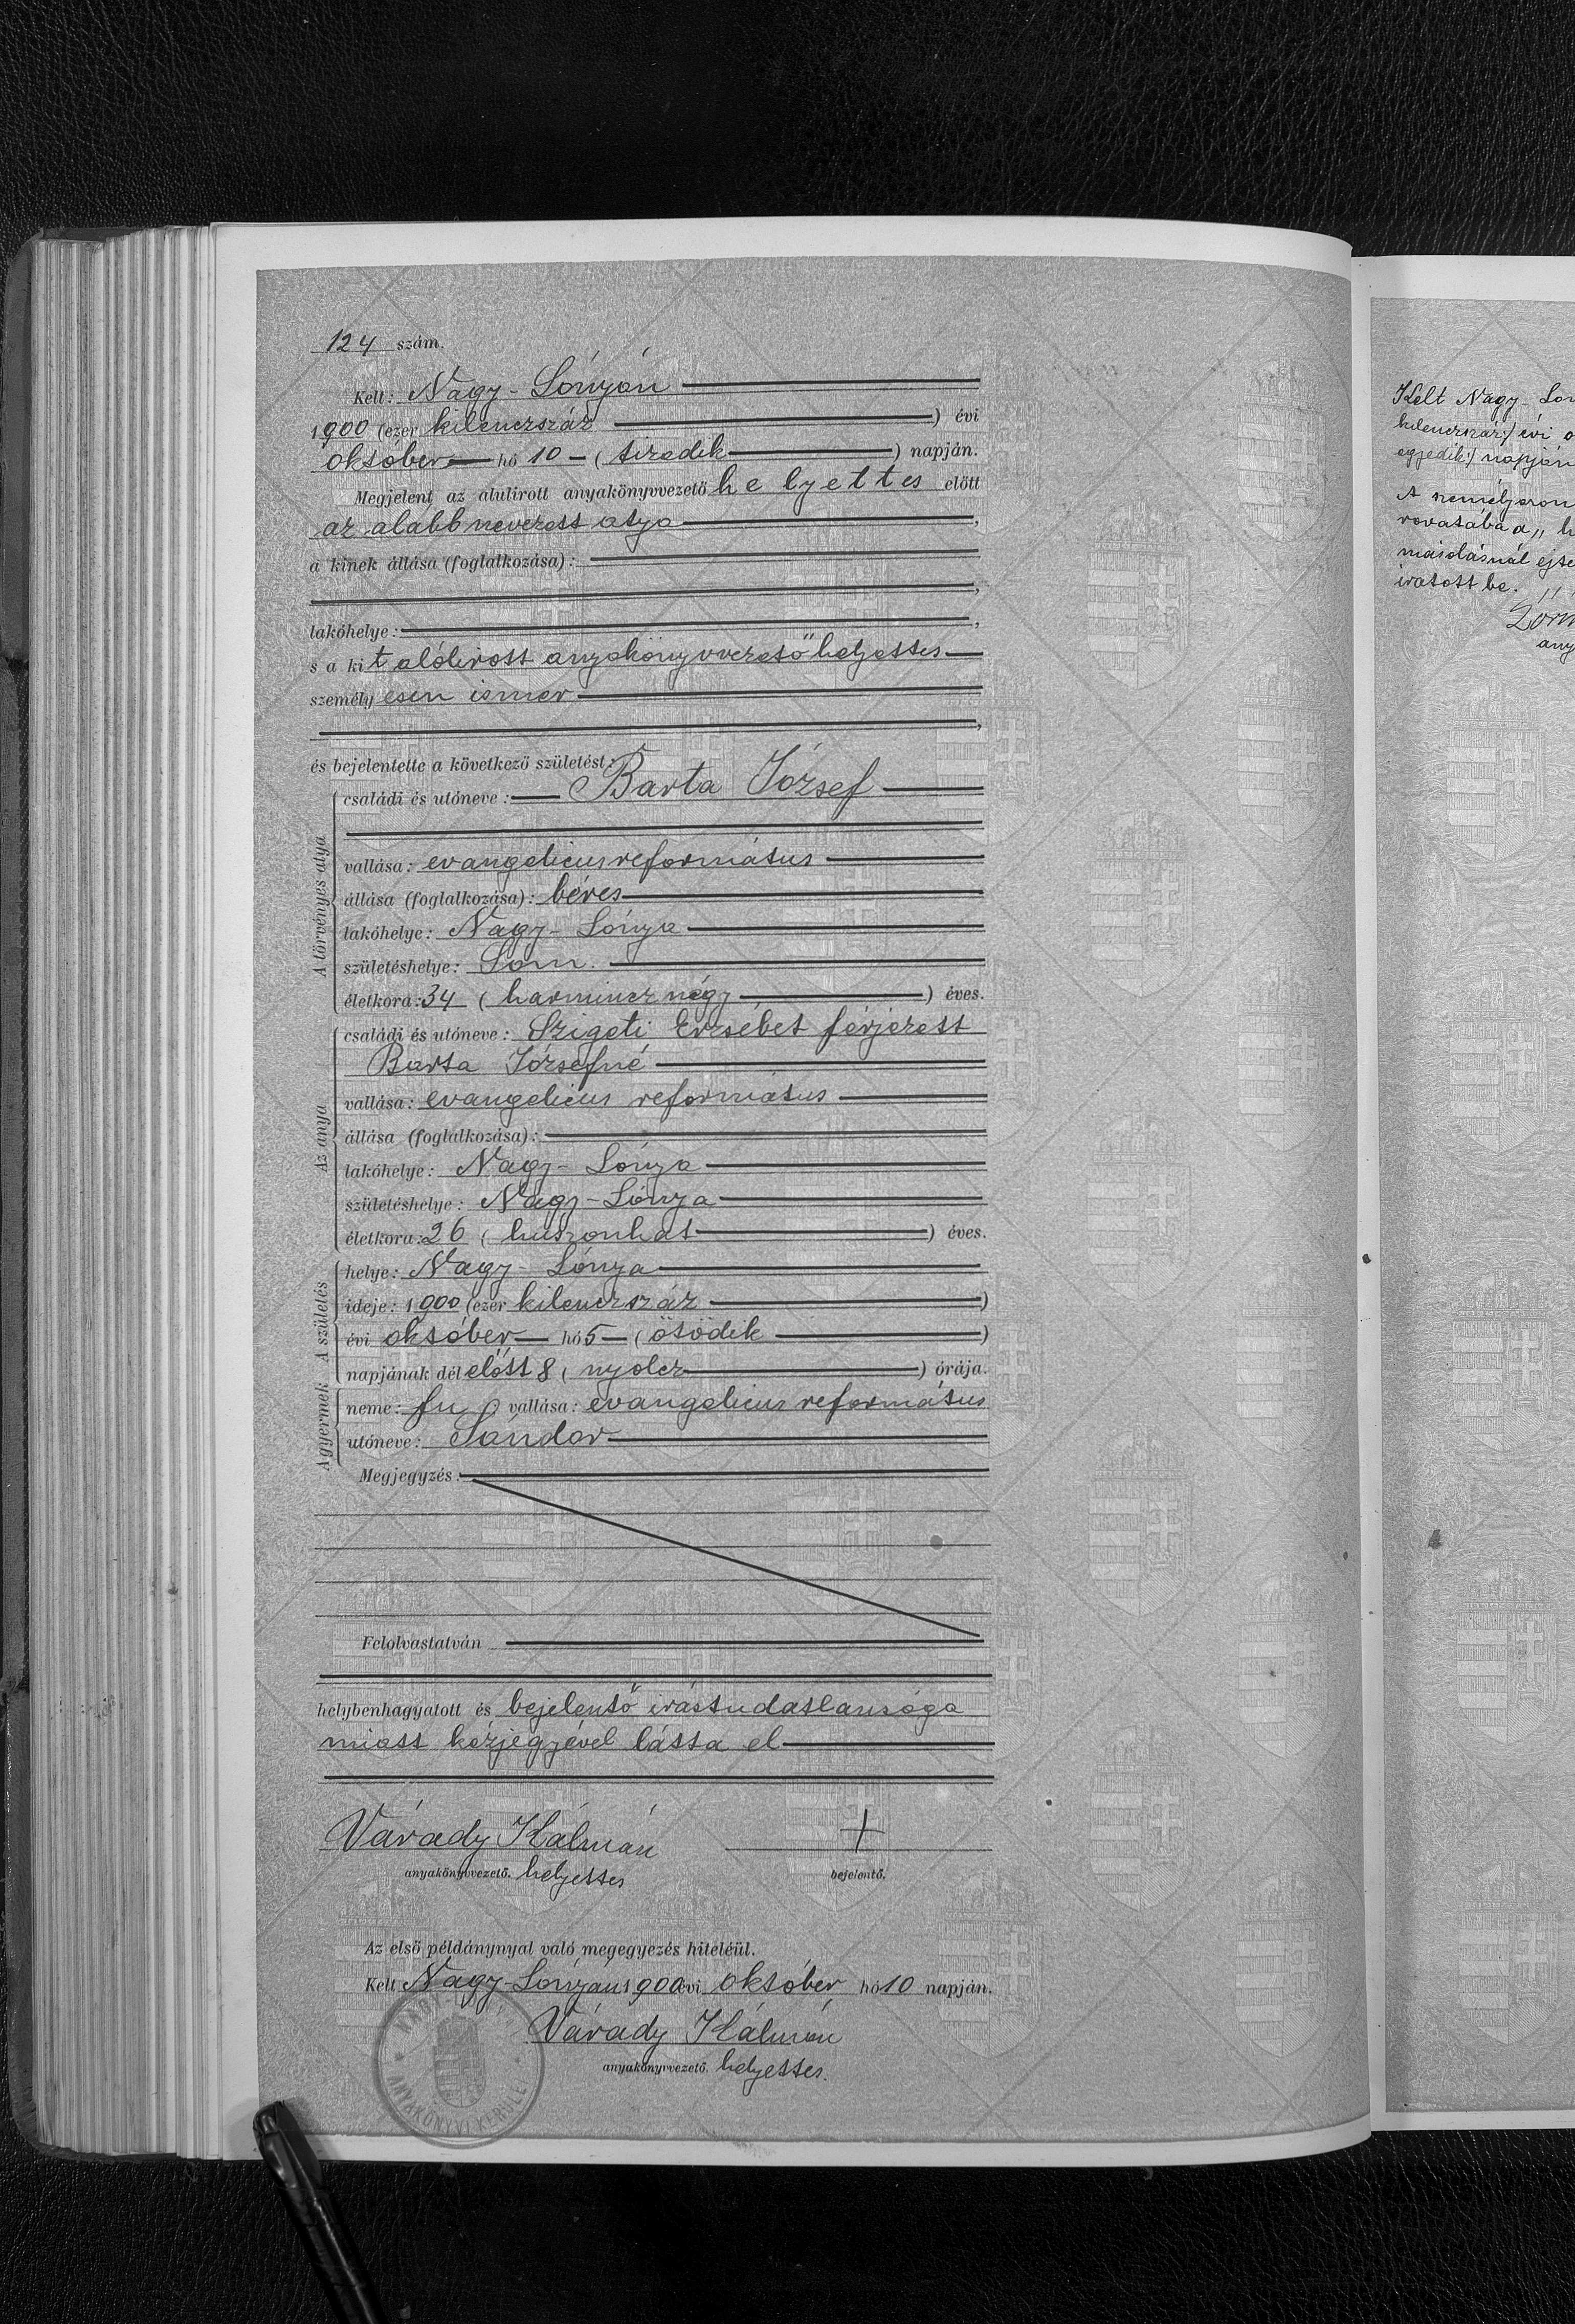 124 szám.
Kelt: Nagy-Lónyán
1900 (ezer kilenczszáz) évi
október hó 10 (tizedik) napján.
Megjelent az alulirott anyakönyvvezető helyettes előtt
az alább nevezett atya,
a kinek állása (foglalkozása):
,
lakóhelye: ,
s a kit alólirott anyakönyvvezető helyettes
személyesen ismer
,
és bejelentette a következő születést:
A törvényes atya
családi és utóneve: Barta József
vallása: evangelicus református
állása (foglalkozása): béres
lakóhelye: Nagy-Lónya
születéshelye: Som.
életkora: 34 (harmincz négy) éves.
Az anya
családi és utóneve: Szigeti Erzsébet férjezett
Barta Józsefné
vallása: evangelicus református
állása (foglalkozása):
lakóhelye: Nagy-Lónya
születéshelye: Nagy-Lónya
életkora: 26 (huszonhat) éves.
A születés
helye: Nagy-Lónya
ideje: 1900 (ezer kilenczszáz)
évi október hó 5 (ötödik)
napjának dél előtt 8 (nyolcz) órája.
A gyermek
neme: fiu vallása: evangelicus református
utóneve: Sándor
Megjegyzés:
Felolvastatván
helybenhagyatott és bejelentő irástudatlansága
miatt kézjegyével látta el
Várady Kálmán +
anyakönyvvezető. helyettes bejelentő.
Az első példánynyal való megegyezés hiteléül.
Kelt Nagy-Lónyán 1900 évi október hó 10 napján.
Várady Kálmán
anyakönyvvezető. helyettes.
ANYAKÖNYVI KERÜLET
Kelt Nagy-Lón
kilenczszáz) évi o
egyedik) napján
A személyazon
rovatába a „h
másolásnál ejte
iratott be.